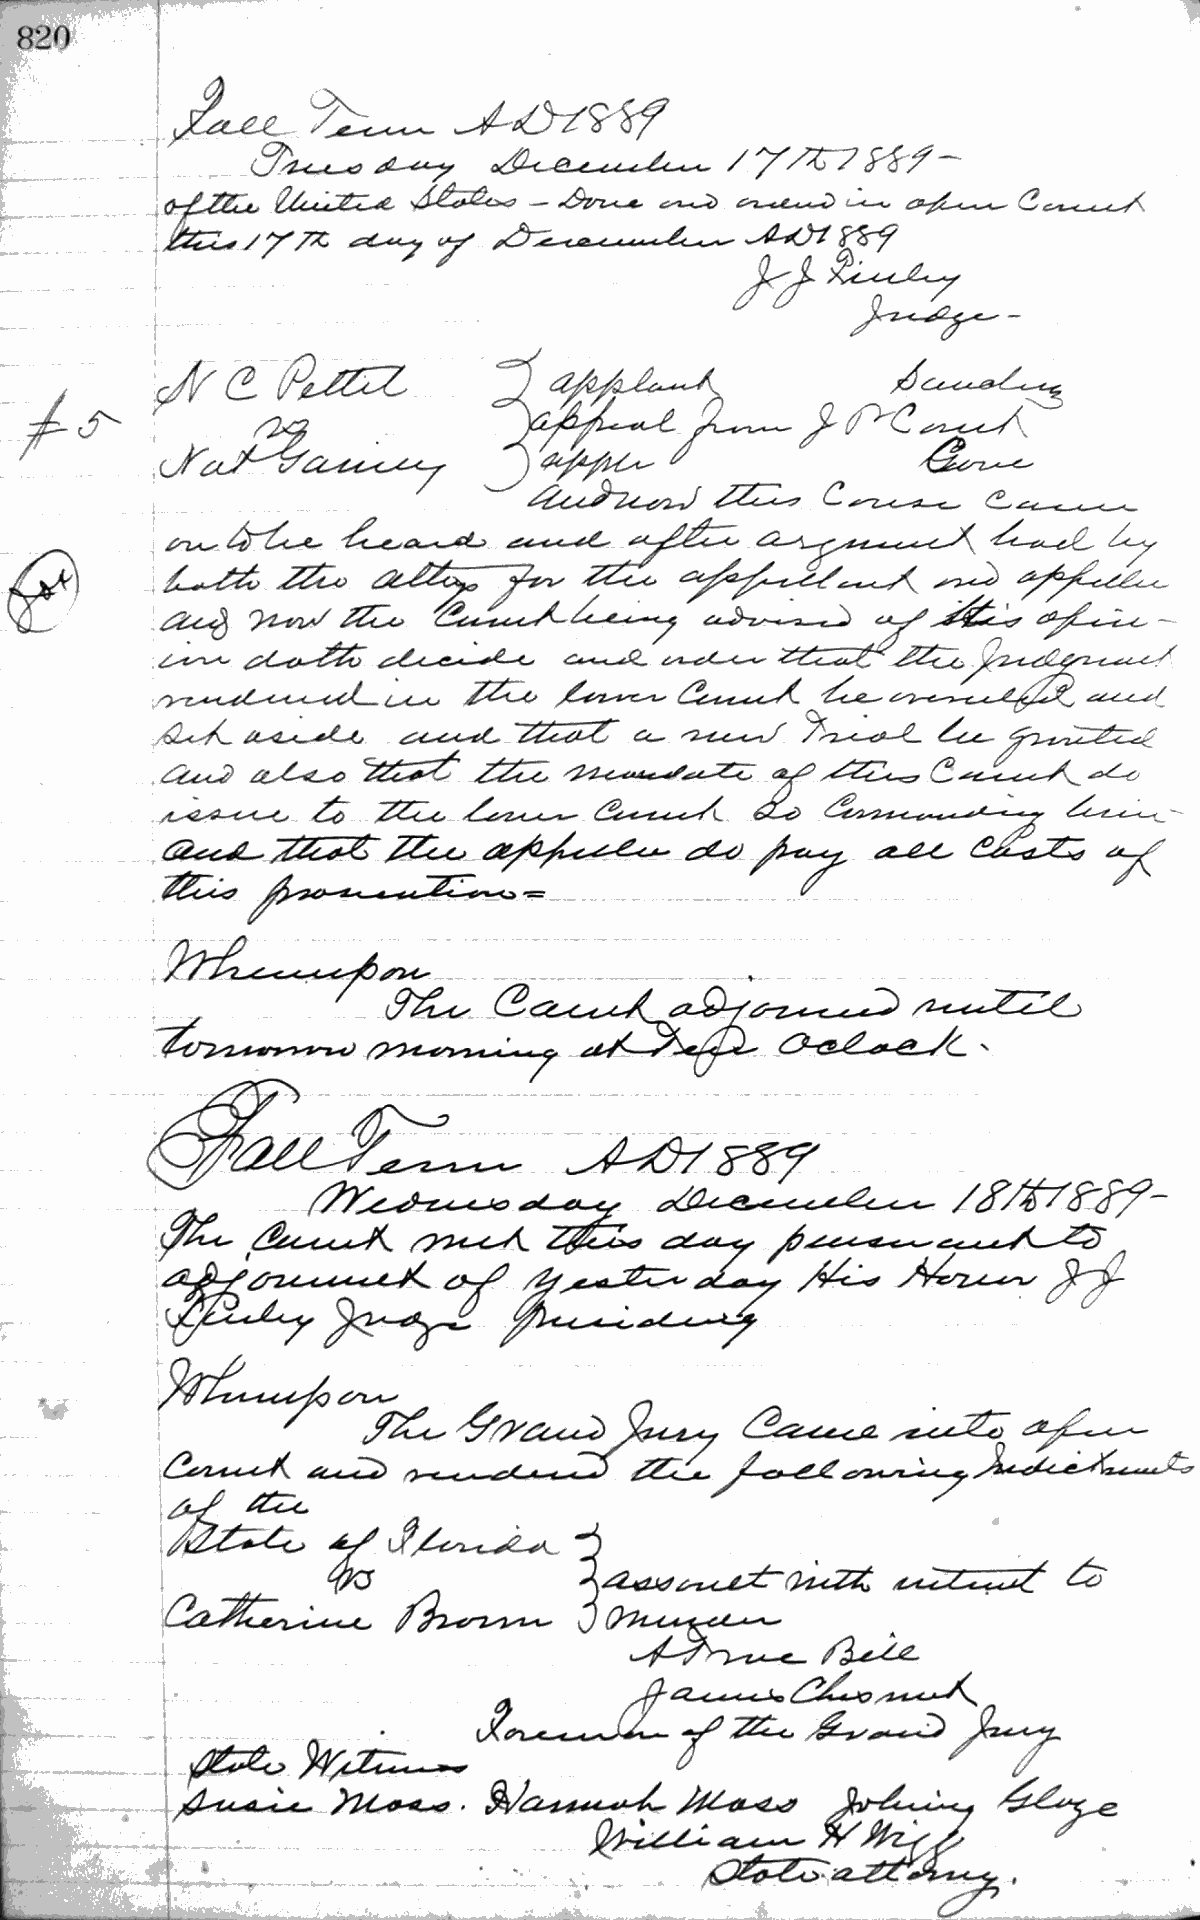 820
Fall Term AD 1889
Tuesday December 17th 1889 -
of the United States - Done and orderd in open Court
this 17th day of December AD 1889
J J Finley
Judge -
N C Pettit } applant
vs } appeal from J P Court
# 5
Nat Gainey } applee Gove
and now this Cause Came
on to be heard and after argument had by
both the attys for the appellant and appellee
and now the Court being advised of its opin -
ion doth decide and order that the Judgment
rendered in the lower Court be overruled and
set aside and that a new Trial be granted
and also that the mandate of this Court do
issue to the lower Court so Commanding him -
and that the appellee do pay all Costs of
this prosecution =
Whereupon
The Court adjourned until
tomorrow morning at Ten Oclock.
Fall Term AD 1889
Wednesday December 18th 1889 -
The Court met this day pursuant to
adjournment of yesterday His Honor J J
Finley Judge presiding
Whereupon
The Grand Jury Came into open
Court and rendered the following Indictments
of the
State of Florida }
vs } assault with intent to
Catherine Brown } murder
A True Bill
James Chesnut
Foreman of the Grand Jury
State Witness
Susie Moss. Hannah Moss Johnny Gloze
William H Wigg
State attorney.